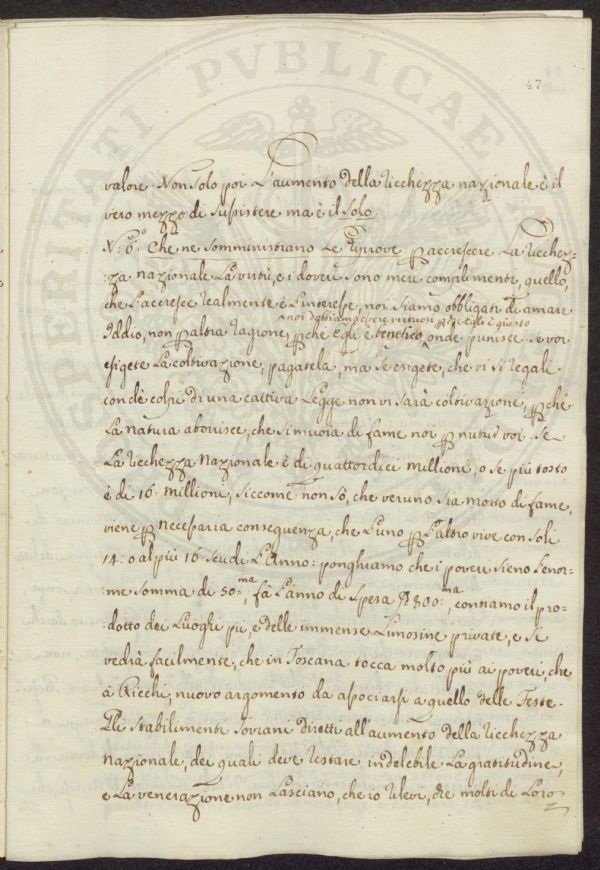 47
valore. Non solo poi L'aumento della ricchezza nazionale è il
vero mezzo di susistere ma è il solo.
N:° 6:° Che ne somministrano Le Pruove p accrescere La ricchez=
=za nazionale La virtù, e i doveri sono meri complimenti, quello,
che L'accresce realmente è L'interesse, noi siamo obbligati di amare
noi dobbiamo essere virtuosi, pchè egli è giusto
Iddio, non p altra ragione, pchè Egli è benefico, onde punisce. Se voi
esigete La coltivazione, pagatela, ma se esigete, che vi si regali
con de colpi di una cattiva Legge non vi sarà coltivazione, pchè
La natura aborrisce, che si muoia di fame noi p nutrir voi. Se
La ricchezza Nazionale è di quattordici millioni, o se più tosto
è di 16. Millioni, siccome non sò, che veruno sia morto di fame,
viene p necessaria conseguenza, che L'uno p L'altro vive con soli
14: o al più 16 scudi L'Anno: ponghiamo che i poveri sieno L'enor=
=me somma di 50:ma, fà L'anno di spesa 800:ma, contiamo il pro=
=dotto dei Luoghi pii, e delle immense Limosine private, e si
vedrà facilmente, che in Toscana tocca molto più ai poveri, che
à Ricchi, nuovo argomento da associarsi a quello delle Feste.
Gli stabilimenti Sovrani diretti all'aumento della ricchezza
nazionale, dei quali deve restare indelebile La gratitudine,
e La venerazione non Lasciano, che io rilevi, che molti di Loro